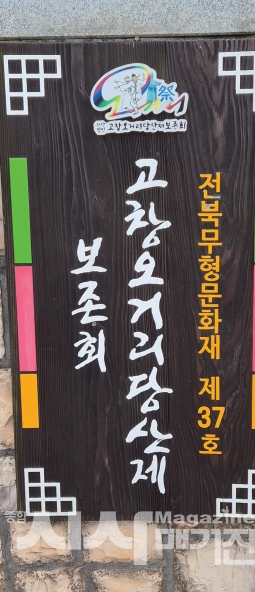 고창오거리당산제보존회
전북무형문화재 제37호
고창오거리당산제
보존회
종합 시사매거진
Magazine